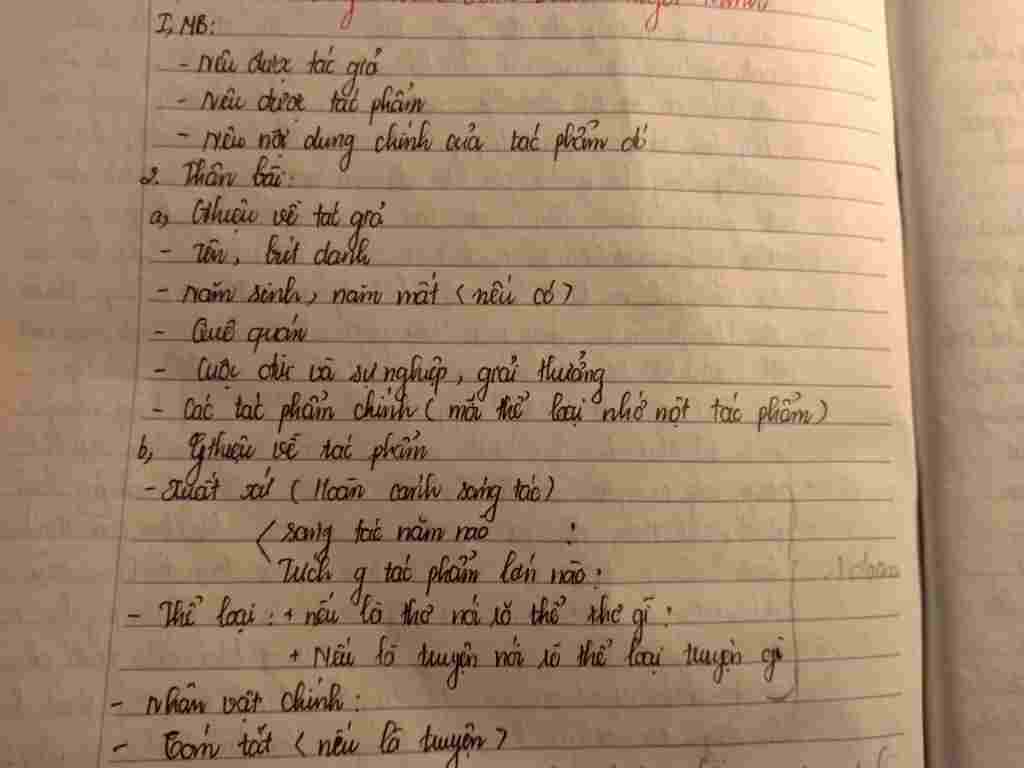 I, MB:
- Nêu được tác giả
- Nêu được tác phẩm
- Nêu nội dung chính của tác phẩm đó
2. Thân bài:
a, Gthiệu về tác giả
- Tên, bút danh
- Năm sinh, năm mất (nếu có)
- Quê quán
- Cuộc đời và sự nghiệp, giải thưởng
- Các tác phẩm chính (mỗi thể loại nhớ một tác phẩm)
b, Gthiệu về tác phẩm
- Xuất xứ (Hoàn cảnh sáng tác)
sáng tác năm nào :
Trích g tác phẩm lớn nào :
- Thể loại : + nếu là thơ nói rõ thể thơ gì :
+ Nếu là truyện nói rõ thể loại truyện gì
- Nhân vật chính :
- Tóm tắt (nếu là truyện)